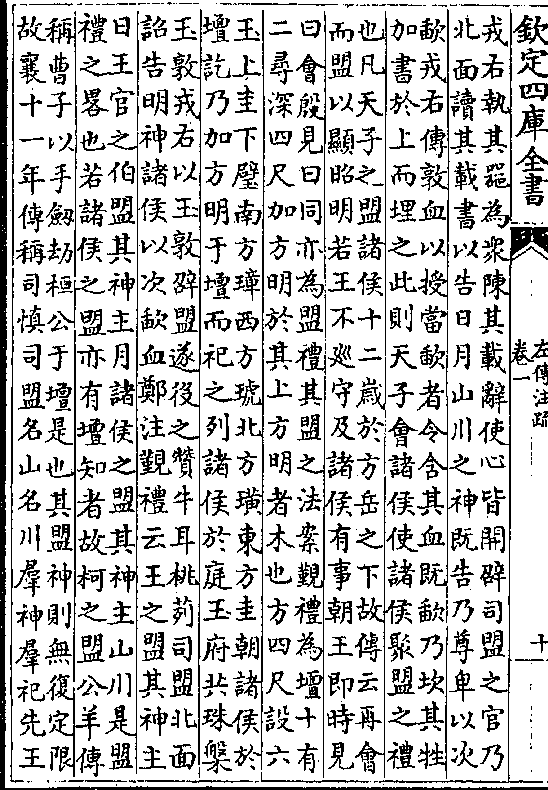 欽定四庫全書
左傳注疏
卷一
十
戎右執其器為衆陳其載辭使心皆開辟司盟之官乃
北面讀其載書以告日月山川之神既告乃尊卑以次
歃戎右傳敦血以授當歃者令含其血既歃乃坎其牲
加書於上而埋之此則天子會諸侯使諸侯聚盟之禮
也凡天子之盟諸侯十二嵗於方岳之下故傳云再會
而盟以顯昭明若王不廵守及諸侯有事朝王即時見
曰會殷見曰同亦為盟禮其盟之法案覲禮為壇十有
二尋深四尺加方明於其上方明者木也方四尺設六
玉上圭下璧南方璋西方琥北方璜東方圭朝諸侯於
壇訖乃加方明于壇而祀之列諸侯於庭玉府共珠槃
玉敦戎右以玉敦辟盟遂役之贊牛耳桃茢司盟北面
詔告明神諸侯以次歃血鄭注覲禮云王之盟其神主
日王官之伯盟其神主月諸侯之盟其神主山川是盟
禮之畧也若諸侯之盟亦有壇知者故柯之盟公羊傳
稱曹子以手劒劫桓公于壇是也其盟神則無復定限
故襄十一年傳稱司慎司盟名山名川羣神羣祀先王